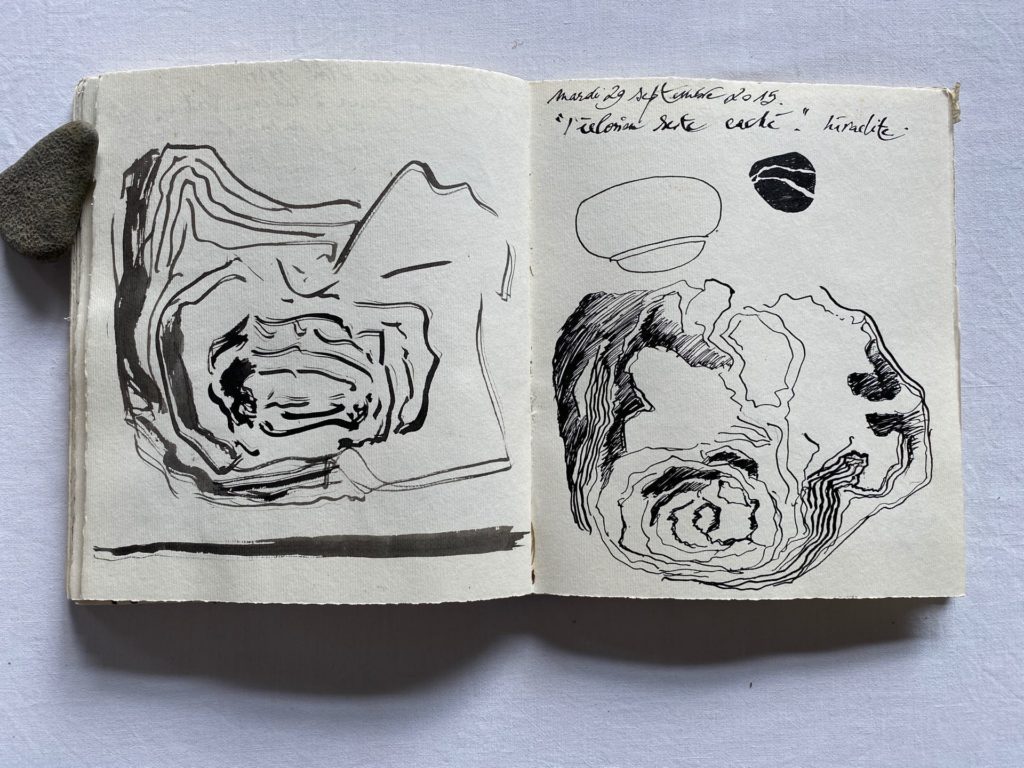 mardi 29 septembre 2015.
"l'éclosion reste caché". héraclite.